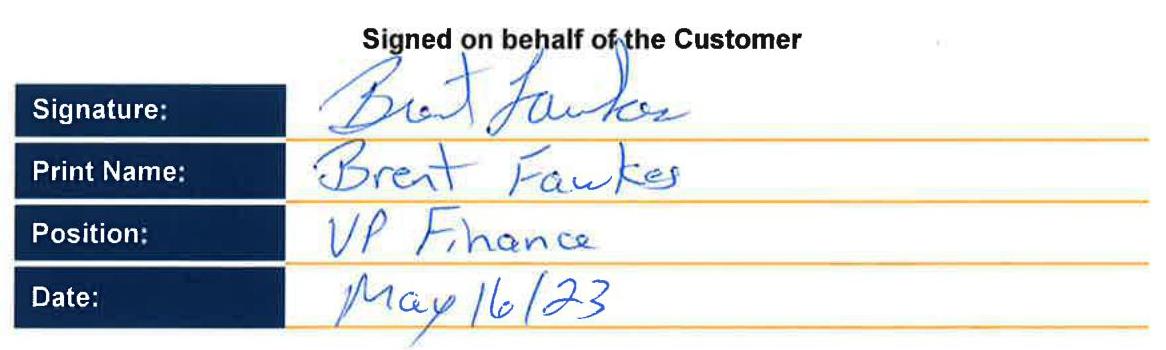 Signed on behalf of the Customer
Signature: Brent Fawkes
Print Name: Brent Fawkes
Position: VP Finance
Date: May 16/23